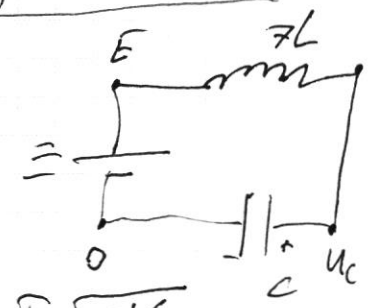 E 7L
0 - + C U_C